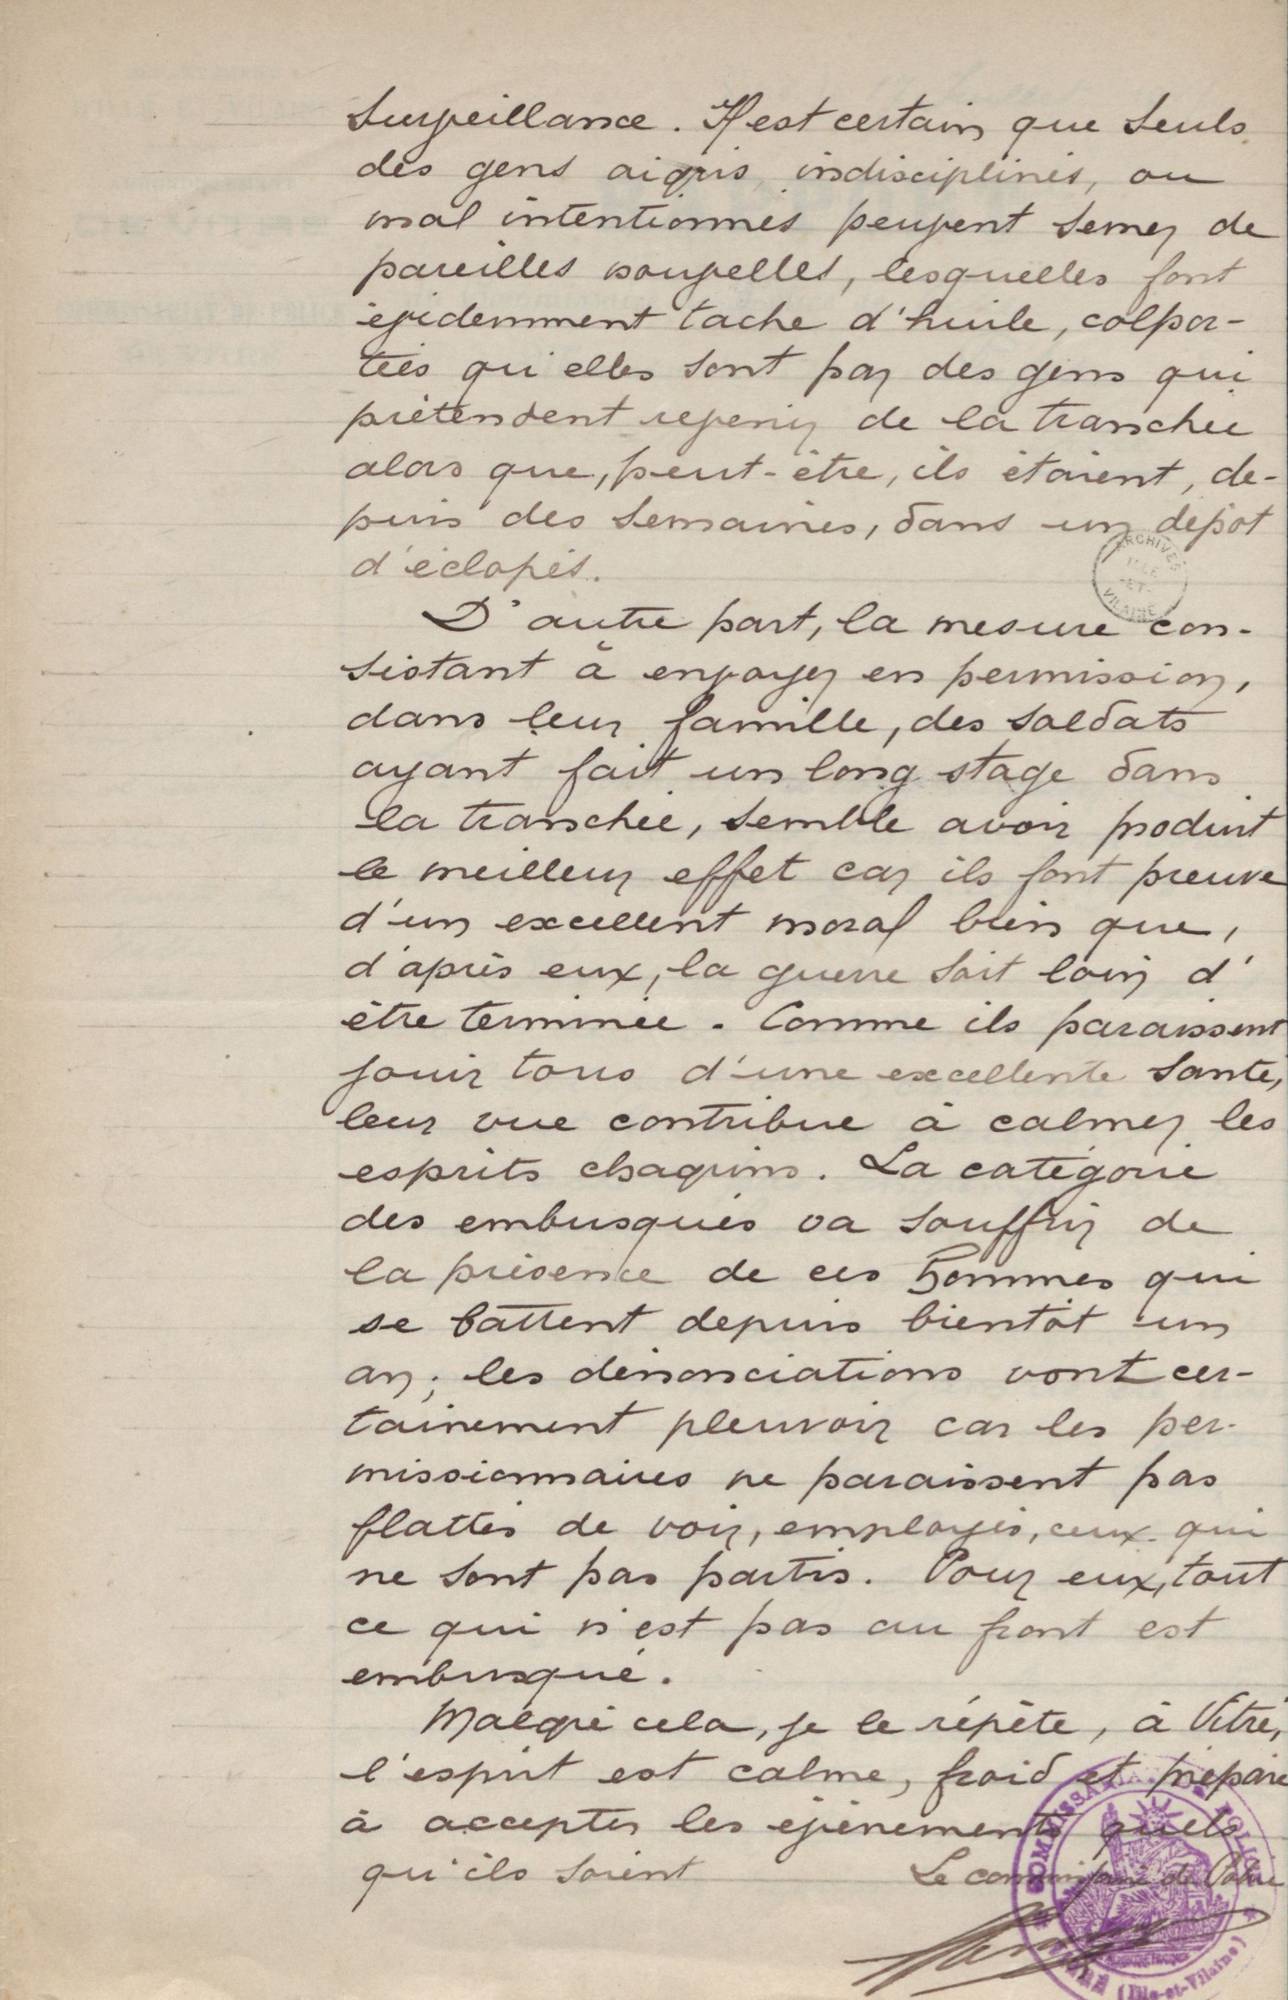 surveillance. Il est certain que seuls
des gens aigris, indisciplinés, ou
mal intentionnés peuvent semer de
pareilles nouvelles, lesquelles font
évidemment tache d'huile, colpor-
tées qu'elles sont par des gens qui
prétendent revenir de la tranchée
alors que, peut-être, ils étaient, de-
puis des semaines, dans un dépôt
d'éclopés.
ARCHIVES
ILLE
-ET-
VILAINE
D'autre part, la mesure con-
sistant à envoyer en permission,
dans leur famille, des soldats
ayant fait un long stage dans
la tranchée, semble avoir produit
le meilleur effet car ils font preuve
d'un excellent moral bien que,
d'après eux, la guerre soit loin d'
être terminée. Comme ils paraissent
jouir tous d'une excellente santé,
leur vue contribue à calmer les
esprits chagrins. La catégorie
des embusqués va souffrir de
la présence de ces hommes qui
se battent depuis bientôt un
an; les dénonciations vont cer-
tainement pleuvoir car les per-
missionnaires ne paraissent pas
flattés de voir, employés, ceux qui
ne sont pas partis. Pour eux, tout
ce qui n'est pas au front est
embusqué.
Malgré cela, je le répète, à Vitré,
l'esprit est calme, froid et préparé
à accepter les événements quels
qu'ils soient
Le commissaire de Police
COMMISSARIAT DE POLICE
VITRÉ (Ille-et-Vilaine)